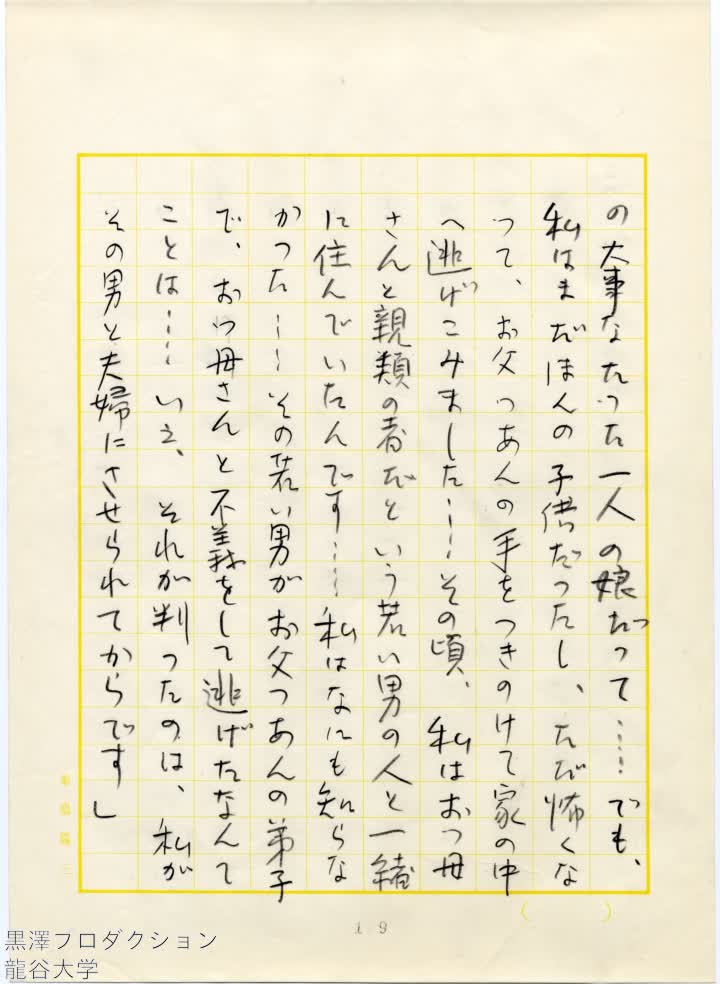 の大事なたった一人の娘だって……でも、
私はまだほんの子供だったし、ただ怖くな
って、お父つあんの手をつきのけて家の中
へ逃げこみました……その頃、私はおっ母
さんと親類の者だという若い男の人と一緒
に住んでいたんです……私はなにも知らな
かった……その若い男がお父つあんの弟子
で、おっ母さんと不義をして逃げたなんて
ことは……いえ、それが判ったのは、私が
その男と夫婦にさせられてからです」
19
黒澤プロダクション
龍谷大学